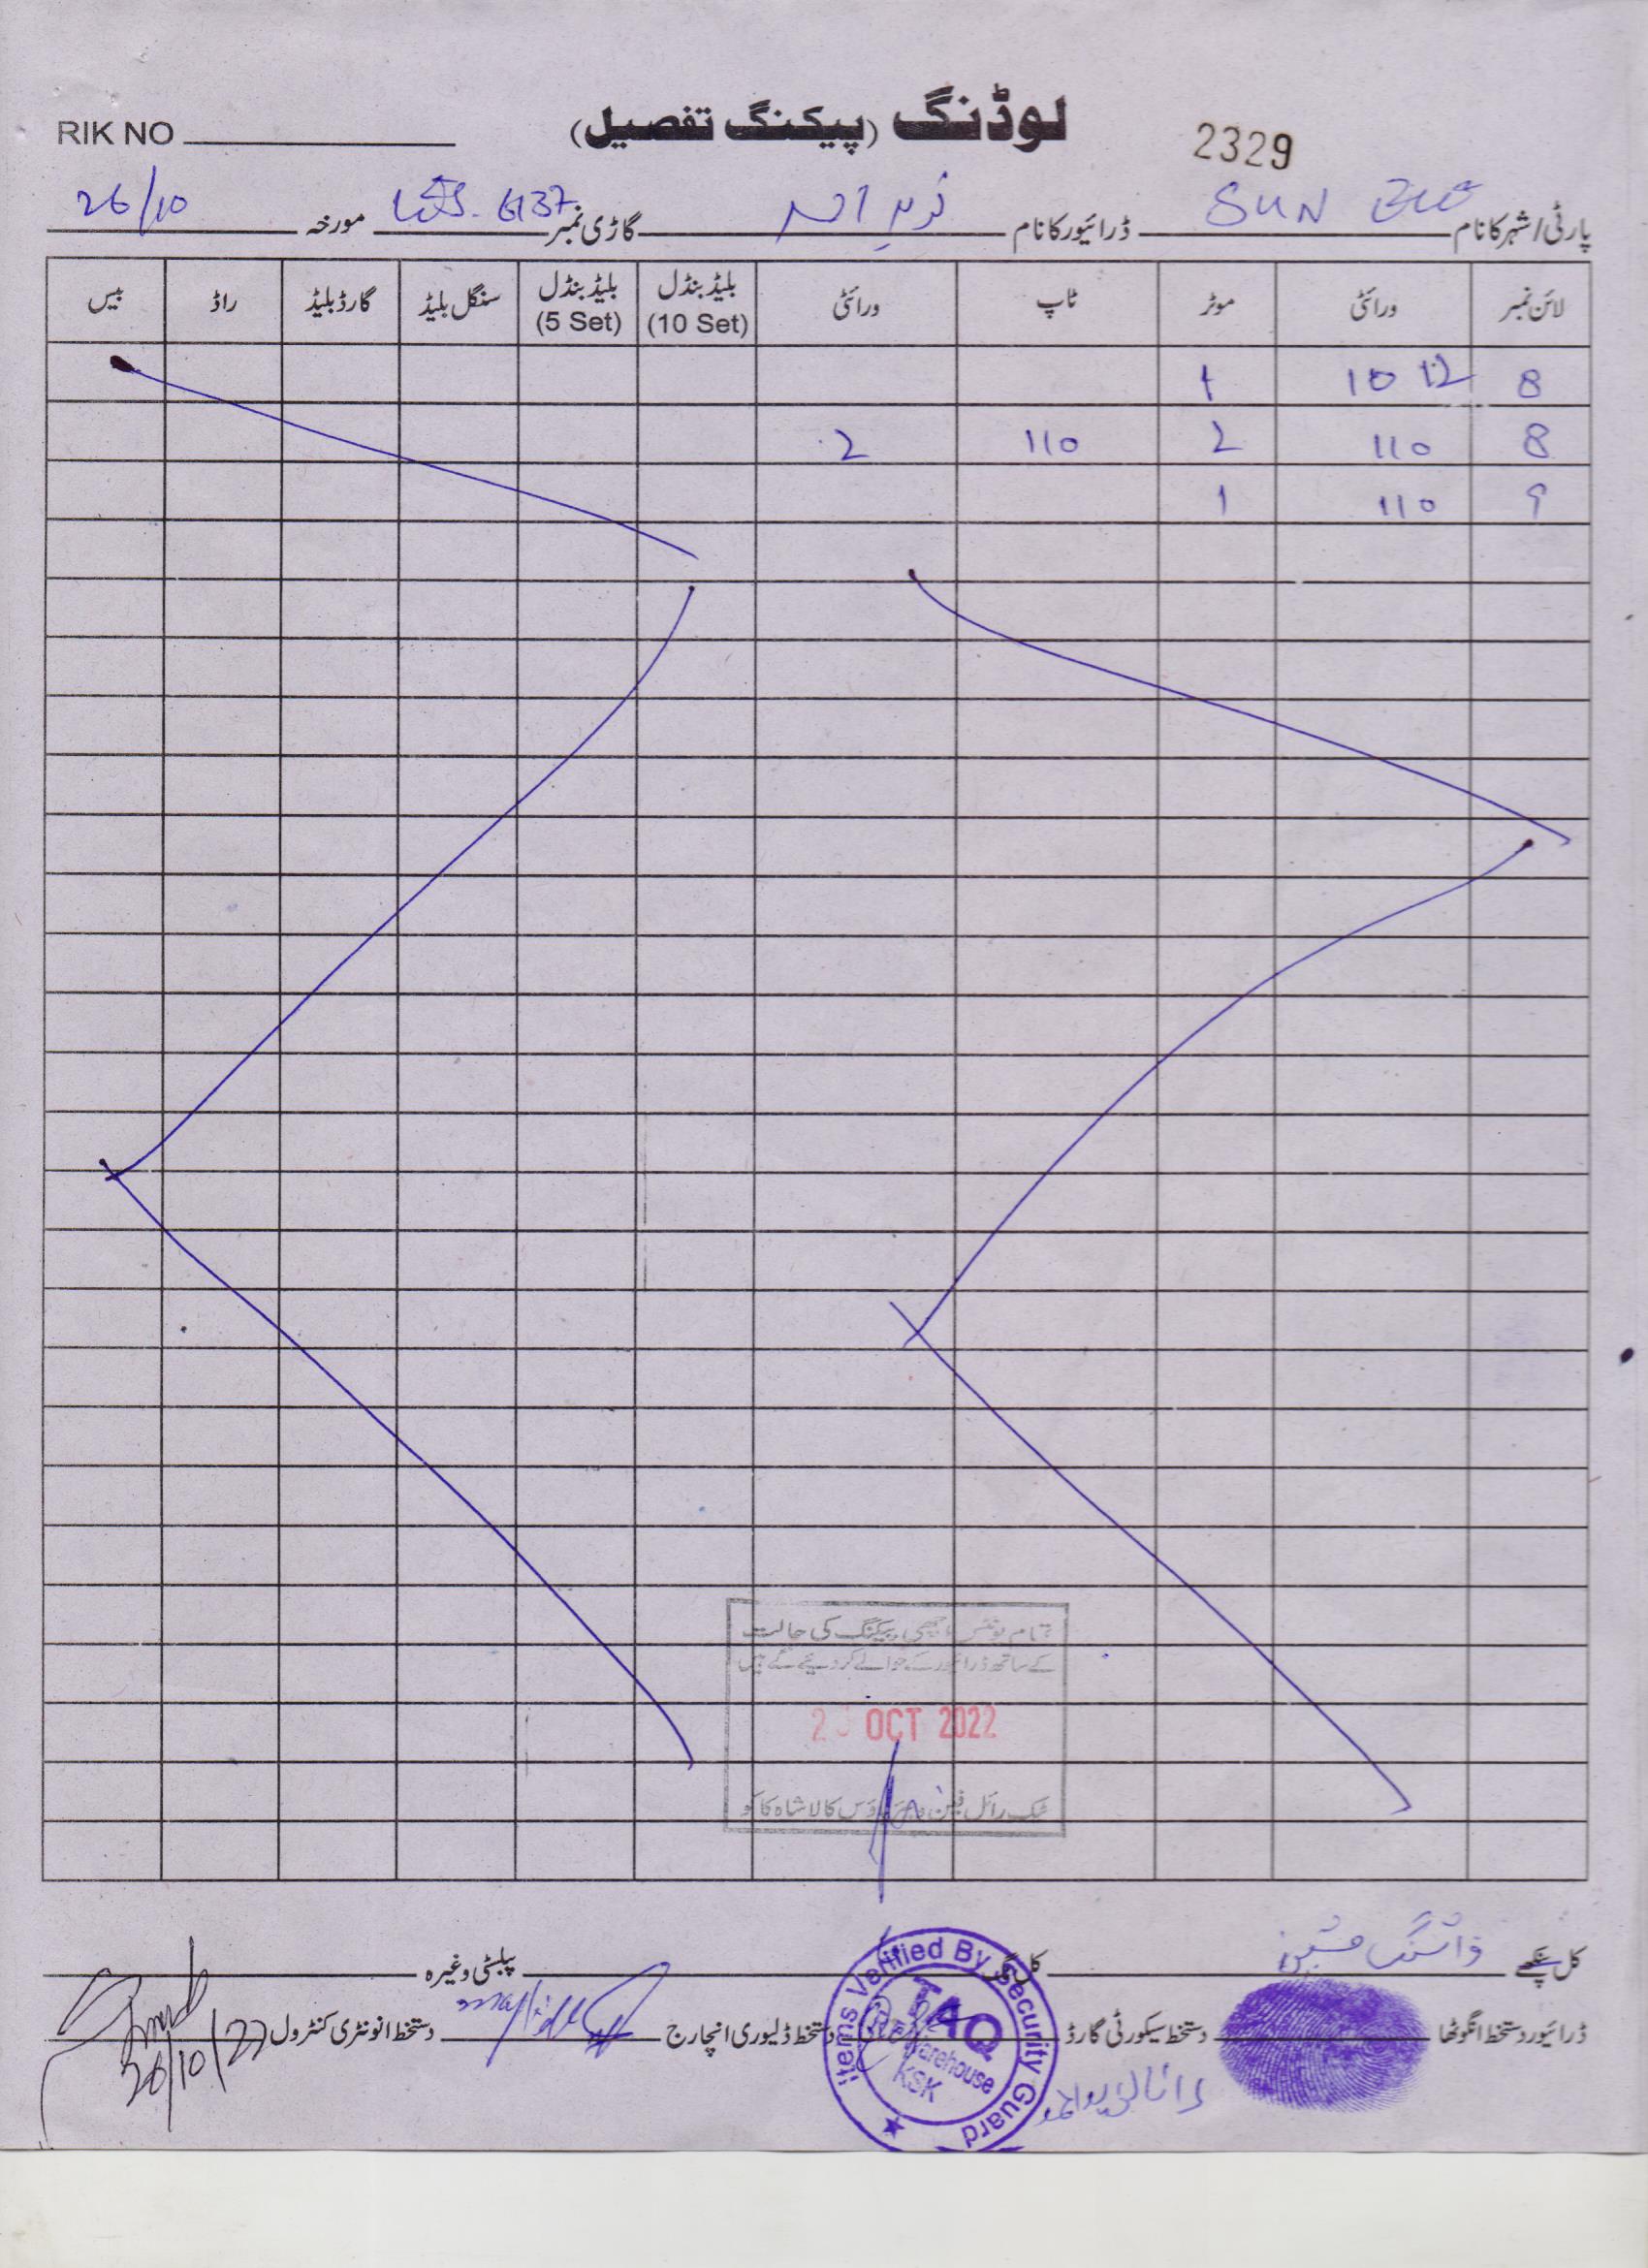 لوڈنگ (پیکنگ تفصیل)
RIK NO
2329
پارٹی/شہر کا نام SUN
ڈرائیور کا نام
گاڑی نمبر 6137
مورخہ 26/10
لائن نمبر ورائٹی موٹر ٹاپ ورائٹی بلیڈ بنڈل (10 Set) بلیڈ بنڈل (5 Set) سنگل بلیڈ گارڈ بلیڈ راڈ بیس
8 10 12 1
8 110 2 110 2
9 110 1
تمام یونٹس اچھی پیکنگ کی حالت
کے ساتھ ڈرائیور کے حوالے کر دیئے گئے ہیں
OCT 2022
رائل فین کالا شاہ کاکو
کل پنکھے واشنگ مشین
کل
پبلسٹی وغیرہ
ڈرائیور دستخط انگوٹھا
دستخط سیکورٹی گارڈ
دستخط ڈلیوری انچارج
دستخط انونٹری کنٹرول
26/10/22
Items Verified By Security Guard
TAQ
Warehouse
KSK